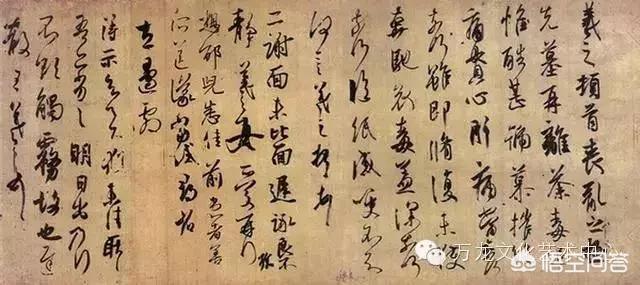 羲之頓首喪亂之極
先墓再離荼毒追
惟酷甚號慕摧絕
痛貫心肝痛當奈何
奈何雖即脩復未獲
奔馳哀毒益深奈何
奈何臨紙感哽不知
何言羲之頓首頓首
二謝面未比面遲詠良不
靜羲之女愛再拜
想邵兒悉佳前患者善
所送議當試尋省
左邊劇
得示知足下猶未佳耿耿
吾亦劣劣明日出乃行
不欲觸霧故也遲
散王羲之頓首
万龙文化艺术中心
悟空问答